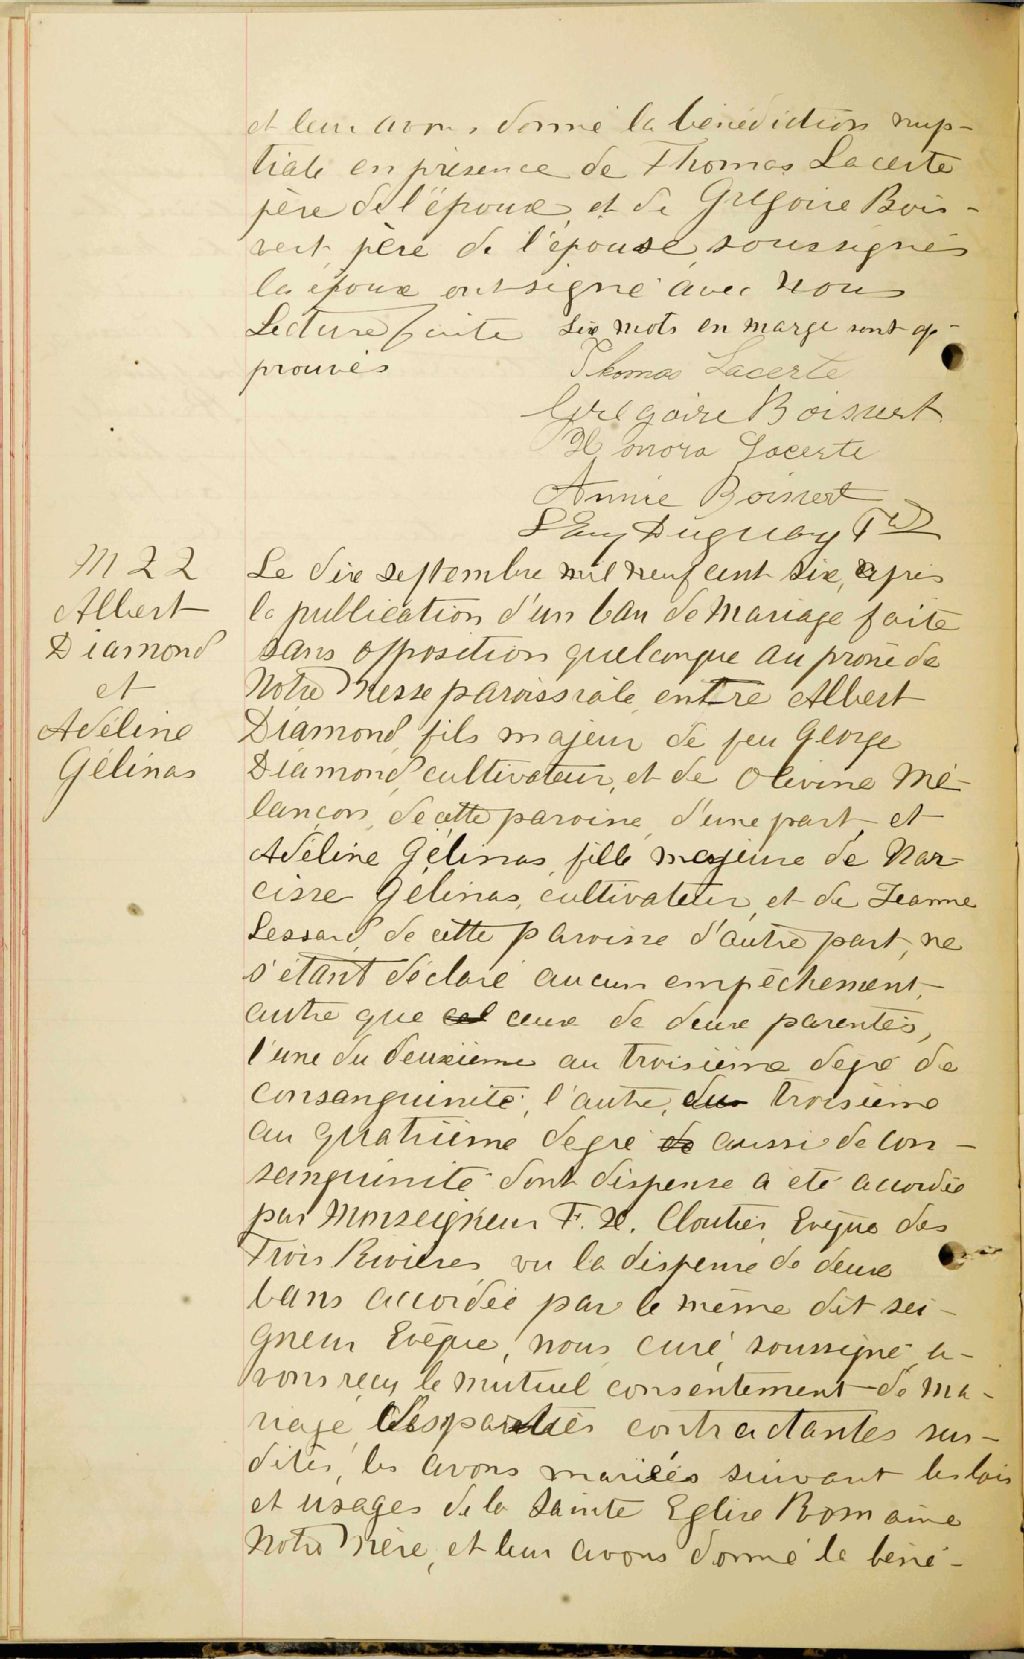 et leur avons donné la bénédiction nup-
tiale en présence de Thomas Lacerte
père de l'époux, et de Grégoire Bois-
vert, père de l'épouse, soussignés
les époux ont signé avec nous
Lecture faite Six mots en marge sont ap-
prouvés
Thomas Lacerte
Grégoire Boisvert
Honora Lacerte
Annie Boisvert
Duguay Ptre
M 22
Albert
Diamond
et
Adéline
Gélinas
Le dix septembre mil neuf cent six, après
la publication d'un ban de Mariage faite
sans opposition quelconque au prône de
Notre Messe paroissiale entre Albert
Diamond, fils majeur de feu George
Diamond, cultivateur, et de Olivine Mé-
lançon, de cette paroisse, d'une part, et
Adéline Gélinas, fille majeure de Nar-
cisse Gélinas, cultivateur, et de Jeanne
Lessard, de cette paroisse d'autre part, ne
s'étant déclaré aucun empêchement,
autre que cel ceux de deux parentés,
l'une du deuxième au troisième degré de
consanguinité, l'autre, du troisième
au quatrième degré de aussi de con-
sanguinité dont dispense a été accordée
par Monseigneur F. X. Cloutier, Evêque des
Trois Rivières, vu la dispense de deux
bans accordée par le même dit sei-
gneur Evêque, nous, curé, soussigné, a-
vons reçu le mutuel consentement de Ma-
riage des parties contractantes sus-
dites, les avons mariées suivant les lois
et usages de la Sainte Eglise Romaine
Notre Mère, et leur avons donné la béné-